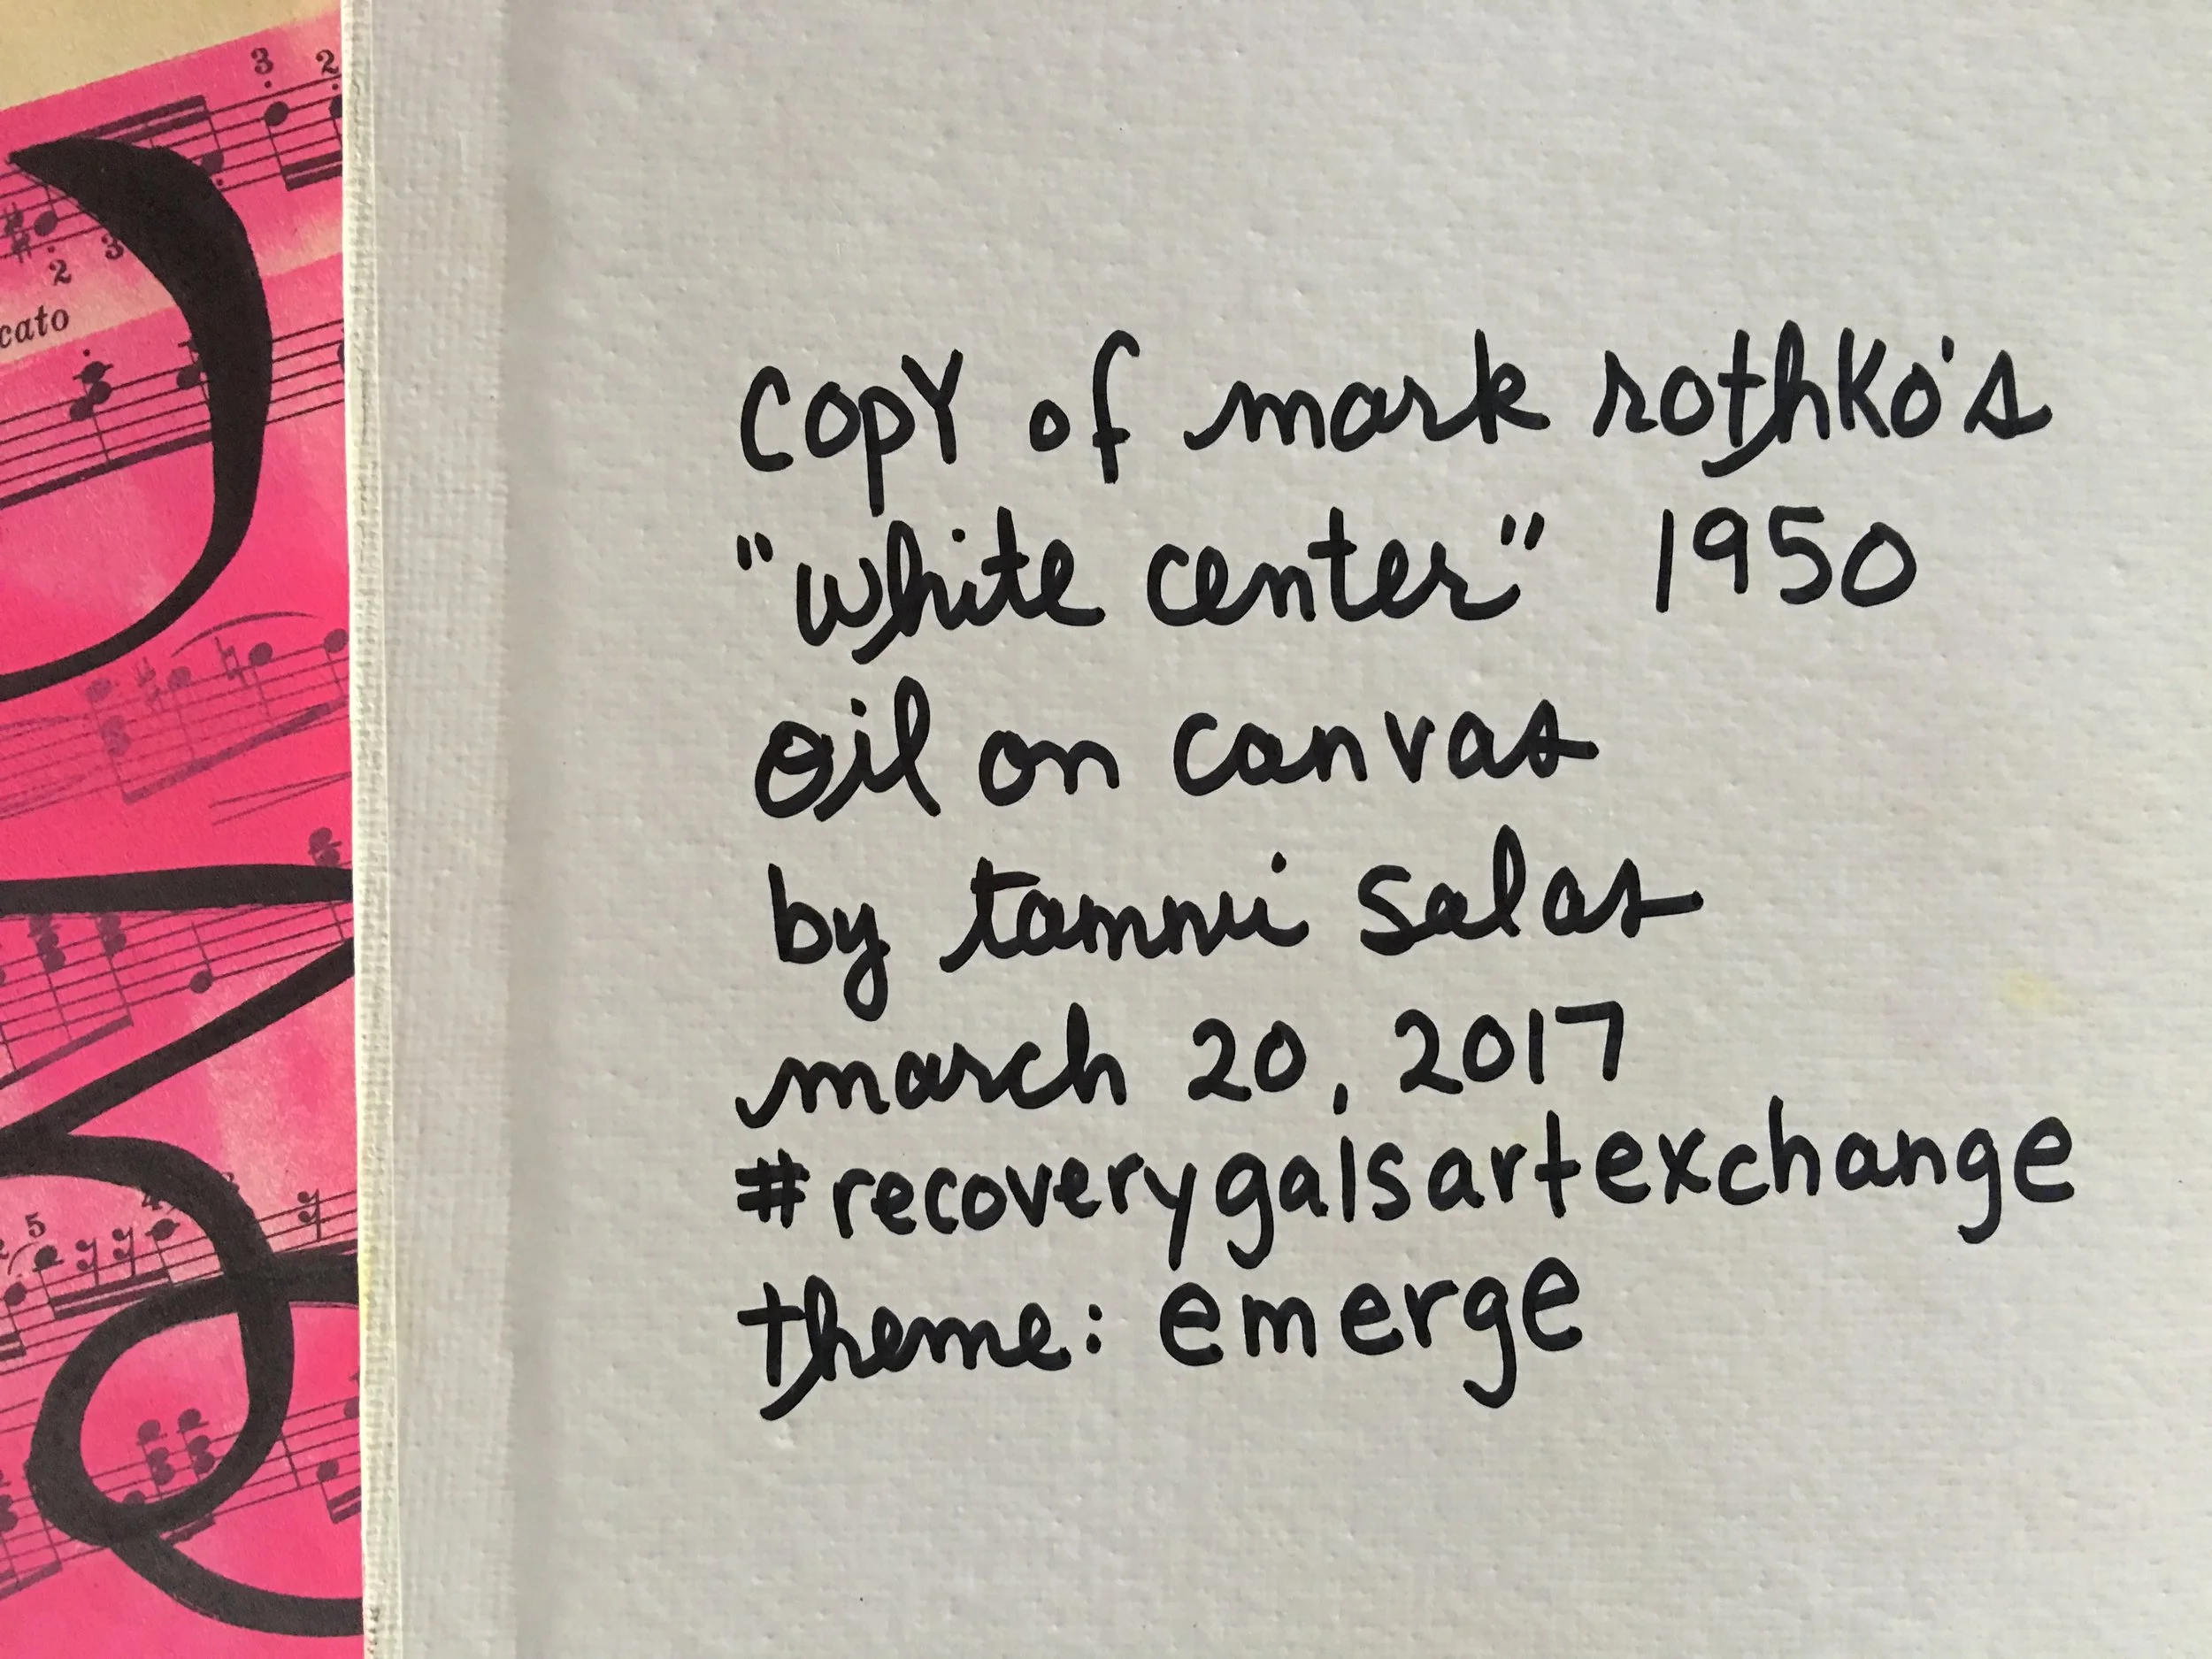 3 2
2 3
cato
5 4
copy of mark rothko's
"white center" 1950
oil on canvas
by tammi salas
march 20, 2017
#recoverygalsartexchange
theme: emerge